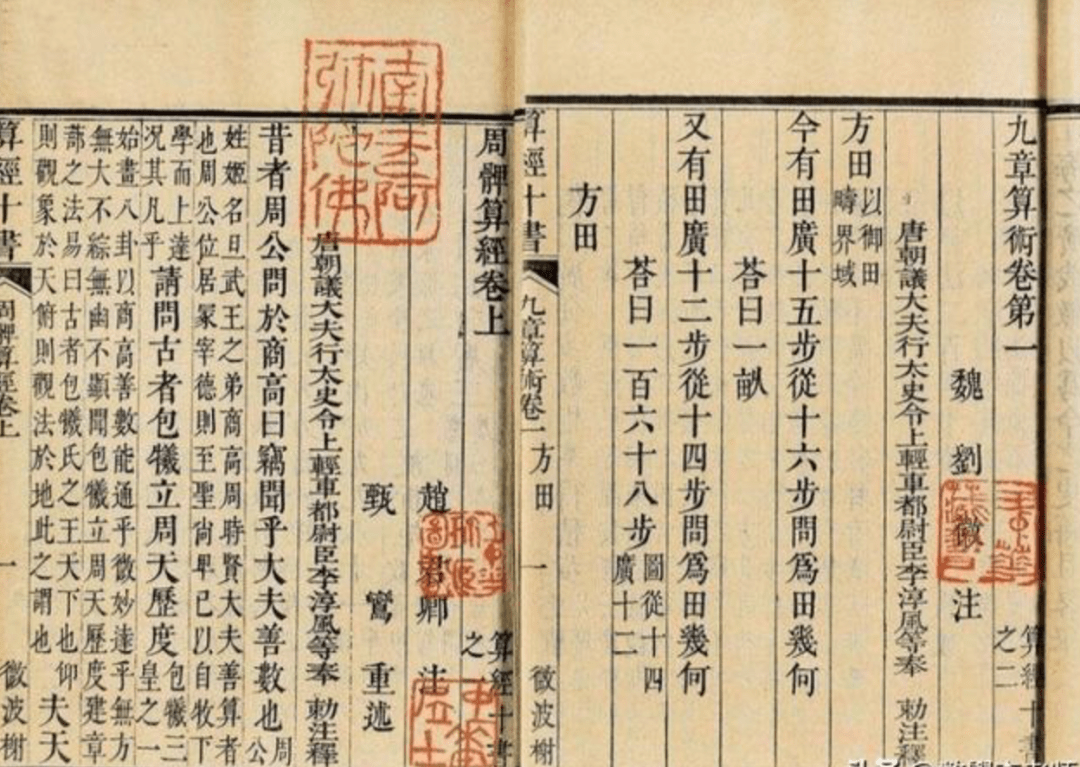 九章算術卷第一
算經十書
之二
魏 劉徽 注
唐朝議大夫行太史令上輕車都尉臣李淳風等奉 勅注釋
方田以御田
疇界域
今有田廣十五步從十六步問爲田幾何
荅曰一畝
又有田廣十二步從十四步問爲田幾何
荅曰一百六十八步圖從十四
廣十二
方田
算經十書
九章算術卷一 方田
一
微波榭
周髀算經卷上
算經十書
之一
趙 君卿 注
甄 鸞 重述
唐朝議大夫行太史令上輕車都尉臣李淳風等奉 勅注釋
昔者周公問於商高曰竊聞乎大夫善數也周公
姓姬名旦武王之弟商高周時賢大夫善算者
也周公位居冢宰德則至聖尙卑己以自牧下
學而上達
況其凡乎
請問古者包犧立周天歷度
包犧三
皇之一
始畫八卦以商高善數能通乎微妙達乎無方
無大不綜無幽不顯聞包犧立周天歷度建章
蔀之法易曰古者包犧氏之王天下也仰
則觀象於天俯則觀法於地此之謂也
夫天
算經十書
周髀算經卷上
一
微波榭
南无阿
弥陀佛